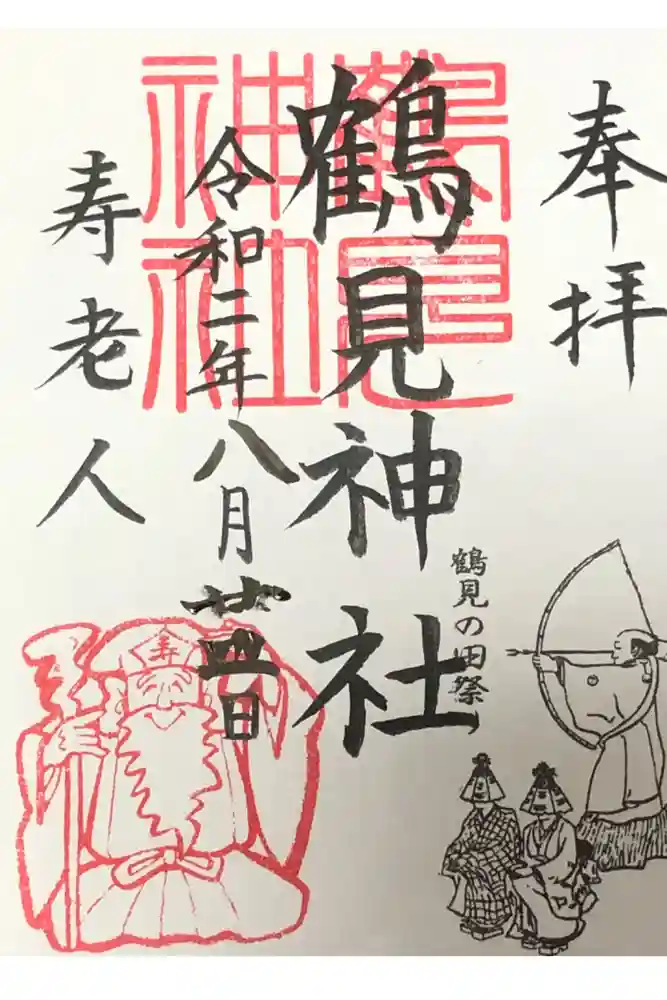 奉拝
鶴見の田祭
鶴見神社
鶴見
神社
令和二年八月廿四日
寿老人
寿